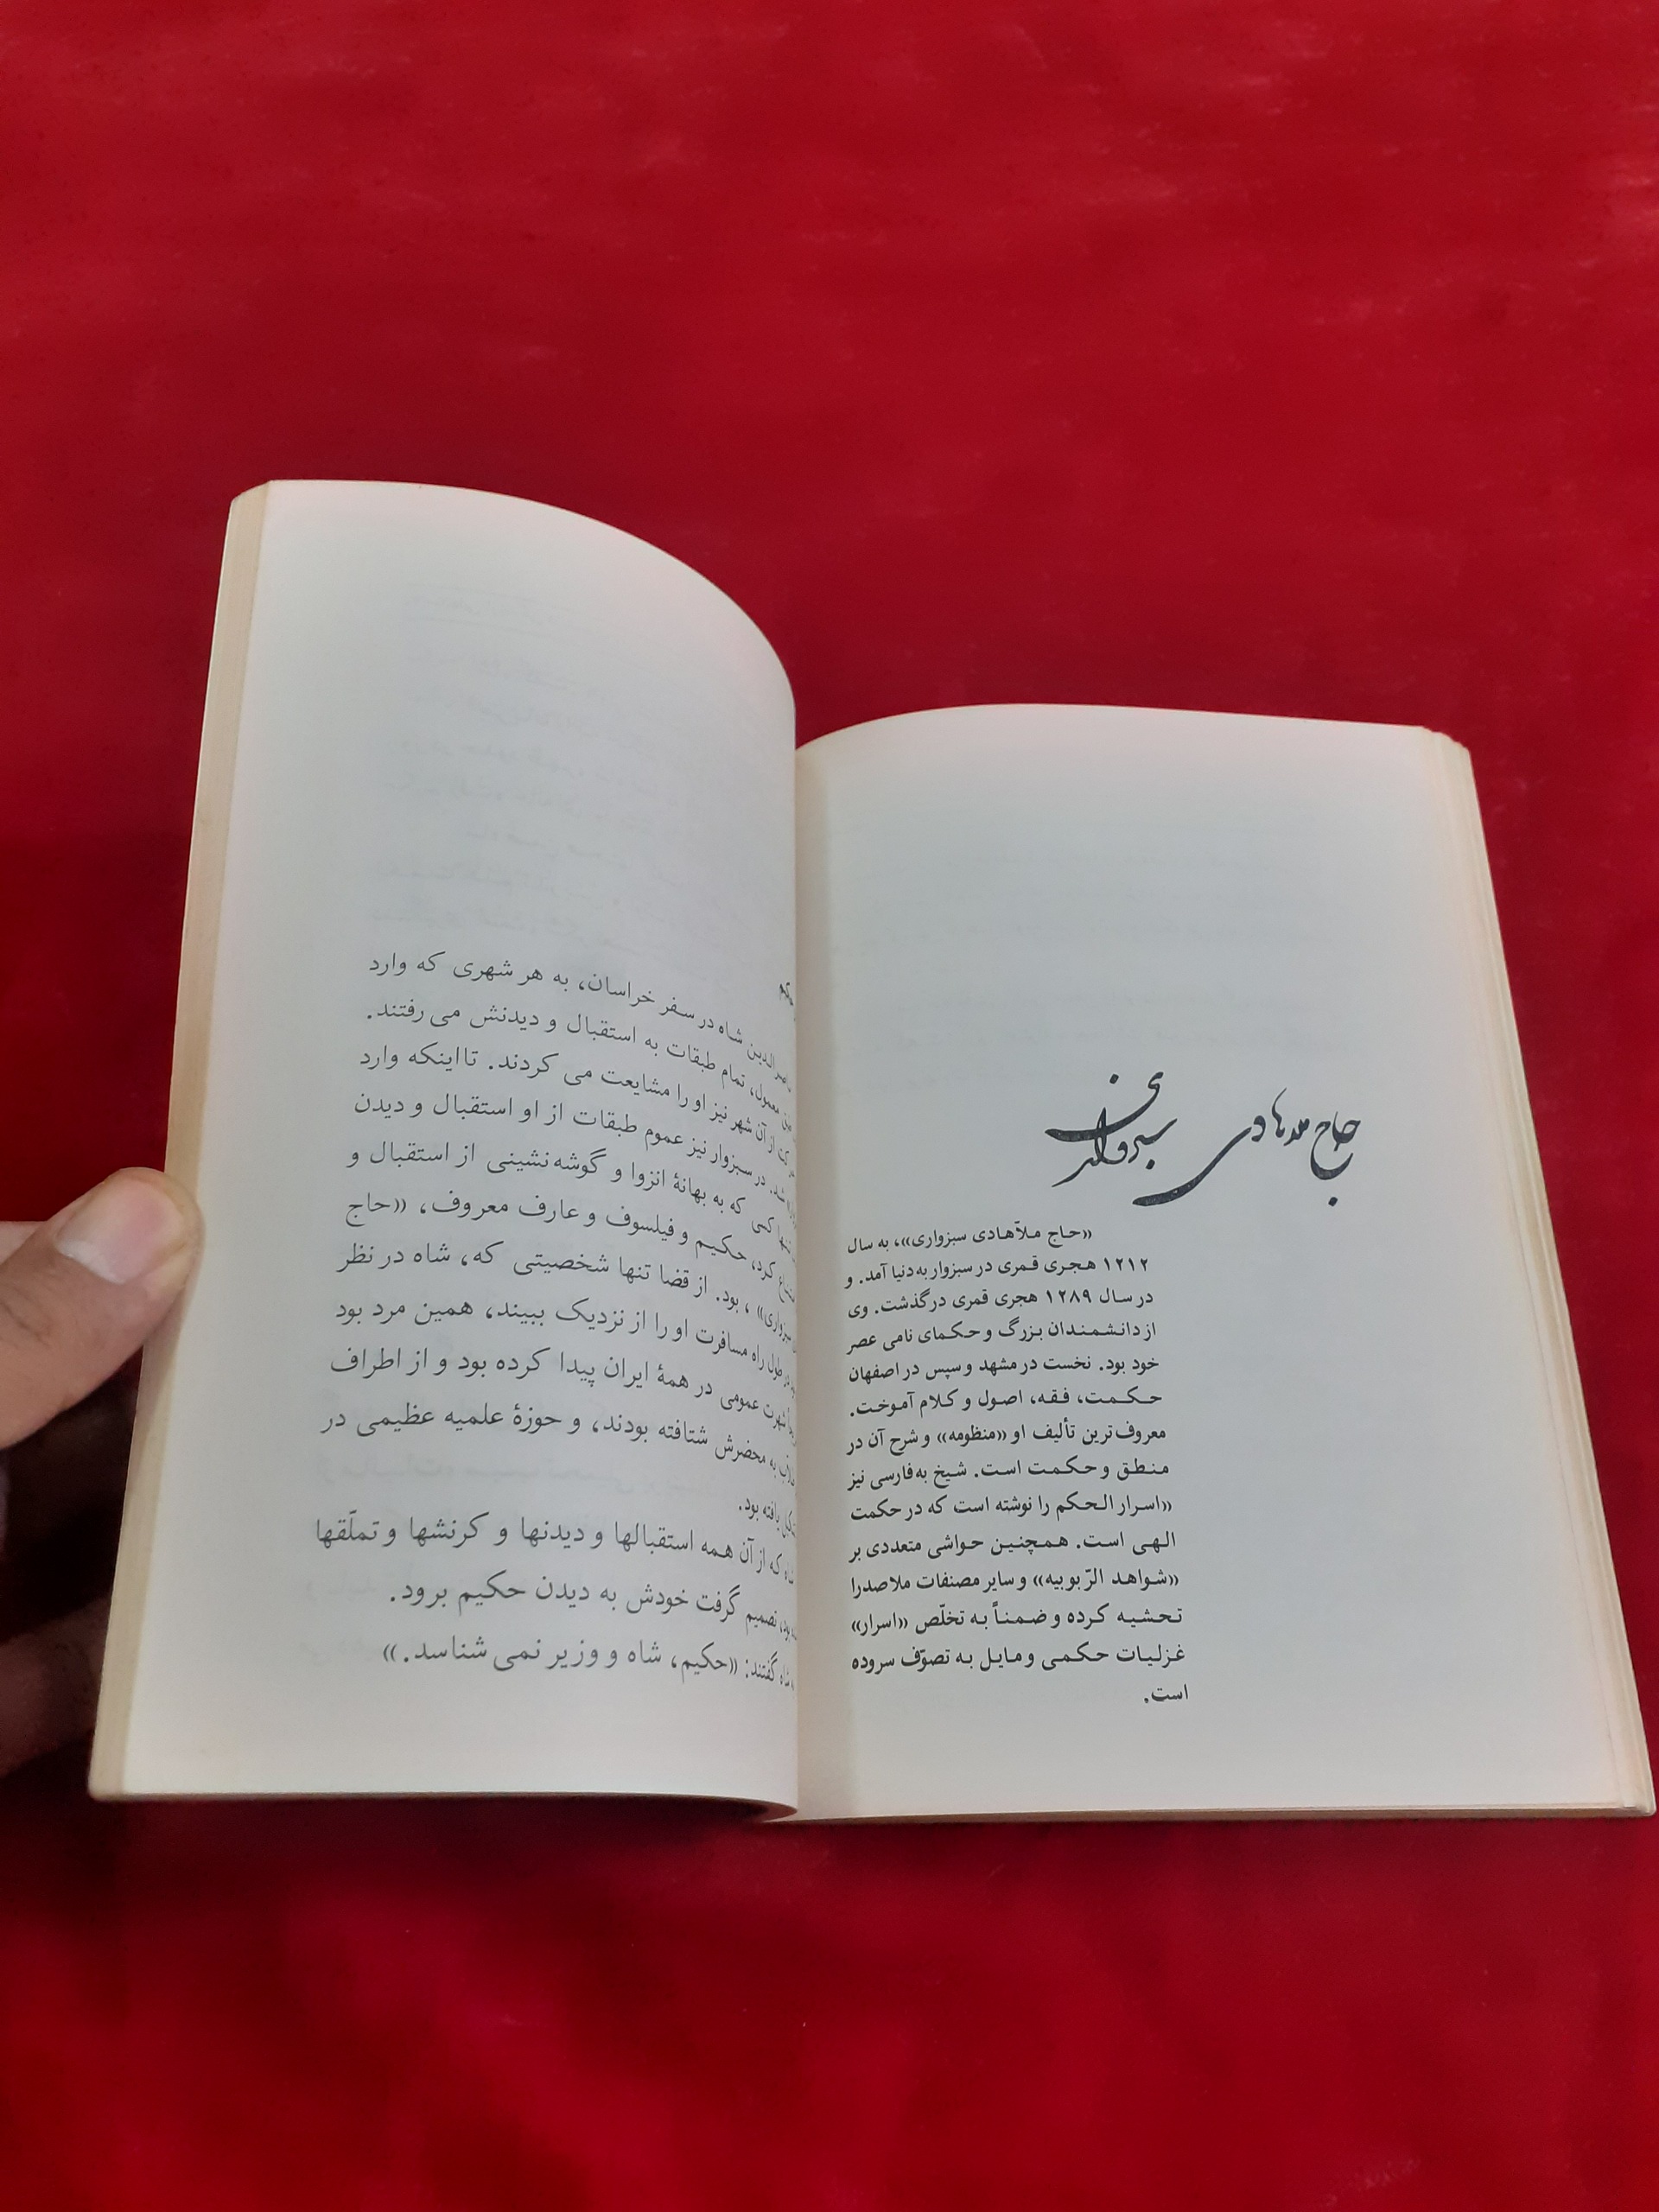 حاج ملاهادی سبزواری
«حاج ملّاهادی سبزواری»، به سال
۱۲۱۲ هجری قمری در سبزوار به دنیا آمد. و
در سال ۱۲۸۹ هجری قمری درگذشت. وی
از دانشمندان بزرگ و حکمای نامی عصر
خود بود. نخست در مشهد و سپس در اصفهان
حکمت، فقه، اصول و کلام آموخت.
معروف‌ترین تألیف او «منظومه» و شرح آن در
منطق و حکمت است. شیخ به فارسی نیز
«اسرار الحکم را نوشته است که در حکمت
الهی است. همچنین حواشی متعددی بر
«شواهد الرّبوبیه» و سایر مصنفات ملاصدرا
تحشیه کرده و ضمناً به تخلّص «اسرار»
غزلیات حکمی و مایل به تصوّف سروده
است.
الدین شاه در سفر خراسان، به هر شهری که وارد
معمول، تمام طبقات به استقبال و دیدنش می رفتند.
از آن شهر نیز او را مشایعت می کردند. تا اینکه وارد
شد. در سبزوار نیز عموم طبقات از او استقبال و دیدن
تنها کسی که به بهانهٔ انزوا و گوشه‌نشینی از استقبال و
کرد، حکیم و فیلسوف و عارف معروف، «حاج
سبزواری»، بود. از قضا تنها شخصیتی که، شاه در نظر
در طول راه مسافرت او را از نزدیک ببیند، همین مرد بود
شهرت عمومی در همهٔ ایران پیدا کرده بود و از اطراف
به محضرش شتافته بودند، و حوزهٔ علمیه عظیمی در
یافته بود.
که از آن همه استقبالها و دیدنها و کرنشها و تملّقها
بود، تصمیم گرفت خودش به دیدن حکیم برود.
شاه گفتند: «حکیم، شاه و وزیر نمی شناسد.»